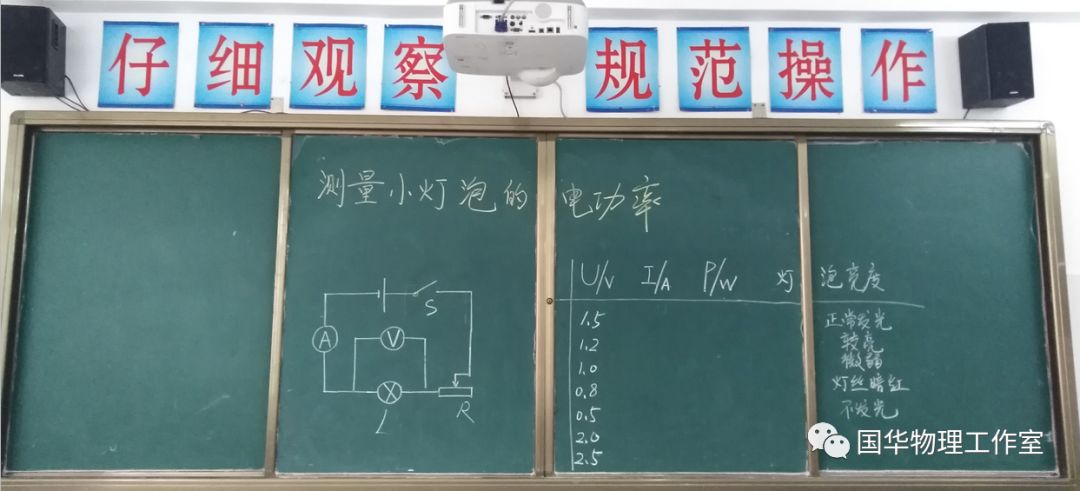 仔细观察 规范操作
测量小灯泡的电功率
U/V I/A P/W 灯泡亮度
S
A V
L R
1.5 正常发光
1.2 较亮
1.0 微弱
0.8 灯丝暗红
0.5 不发光
2.0
2.5
国华物理工作室